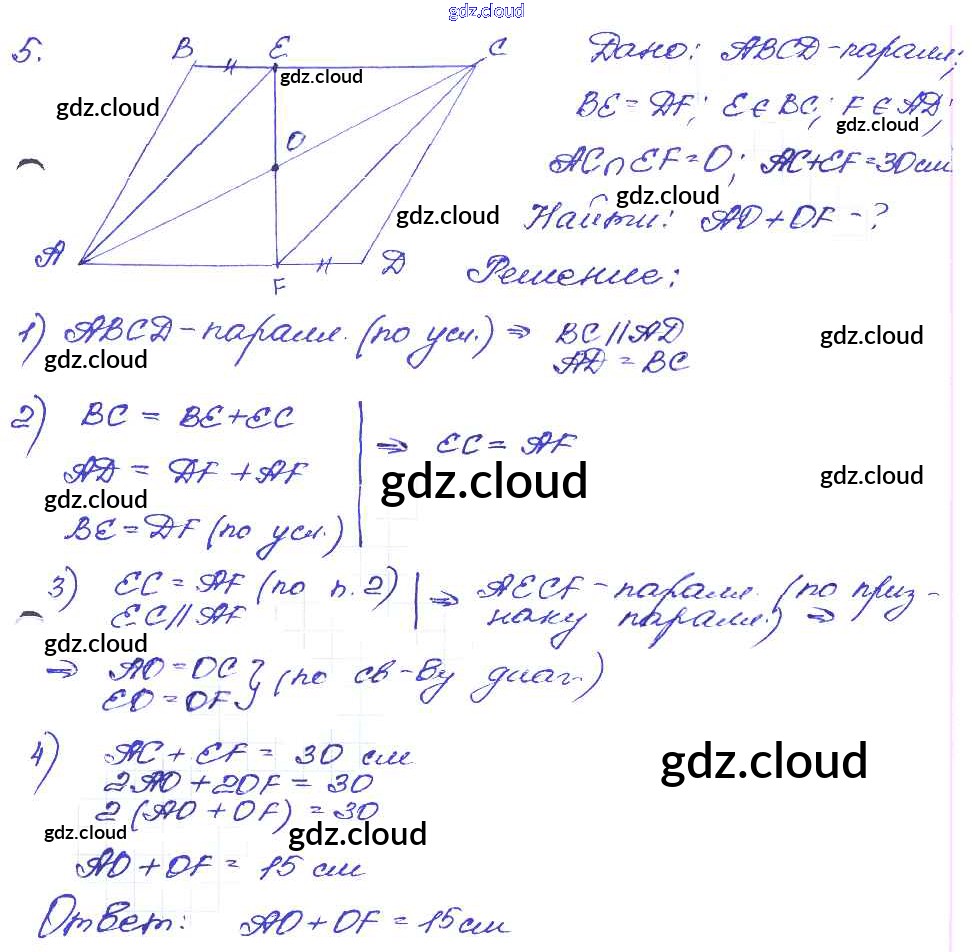 gdz.cloud
5.
B E C
gdz.cloud
gdz.cloud
O
A F D
Дано: ABCD-паралл;
BE = DF; E ∈ BC; F ∈ AD;
gdz.cloud
AC ∩ EF = O; AC+EF = 30 см
gdz.cloud
gdz.cloud
Найти: AO + OF - ?
Решение:
1) ABCD-паралл. (по усл.) ⇒ BC || AD
AD = BC
gdz.cloud
gdz.cloud
2) BC = BE + EC
AD = DF + AF
BE = DF (по усл.)
⇒ EC = AF
gdz.cloud
gdz.cloud
gdz.cloud
3) EC = AF (по п. 2)
EC || AF
⇒ AECF - паралл. (по приз-
наку паралл.) ⇒
gdz.cloud
⇒ AO = OC
EO = OF } (по св-ву диаг.)
4) AC + EF = 30 см
2AO + 2OF = 30
2 (AO + OF) = 30
gdz.cloud
gdz.cloud
gdz.cloud
AO + OF = 15 см
Ответ: AO + OF = 15 см